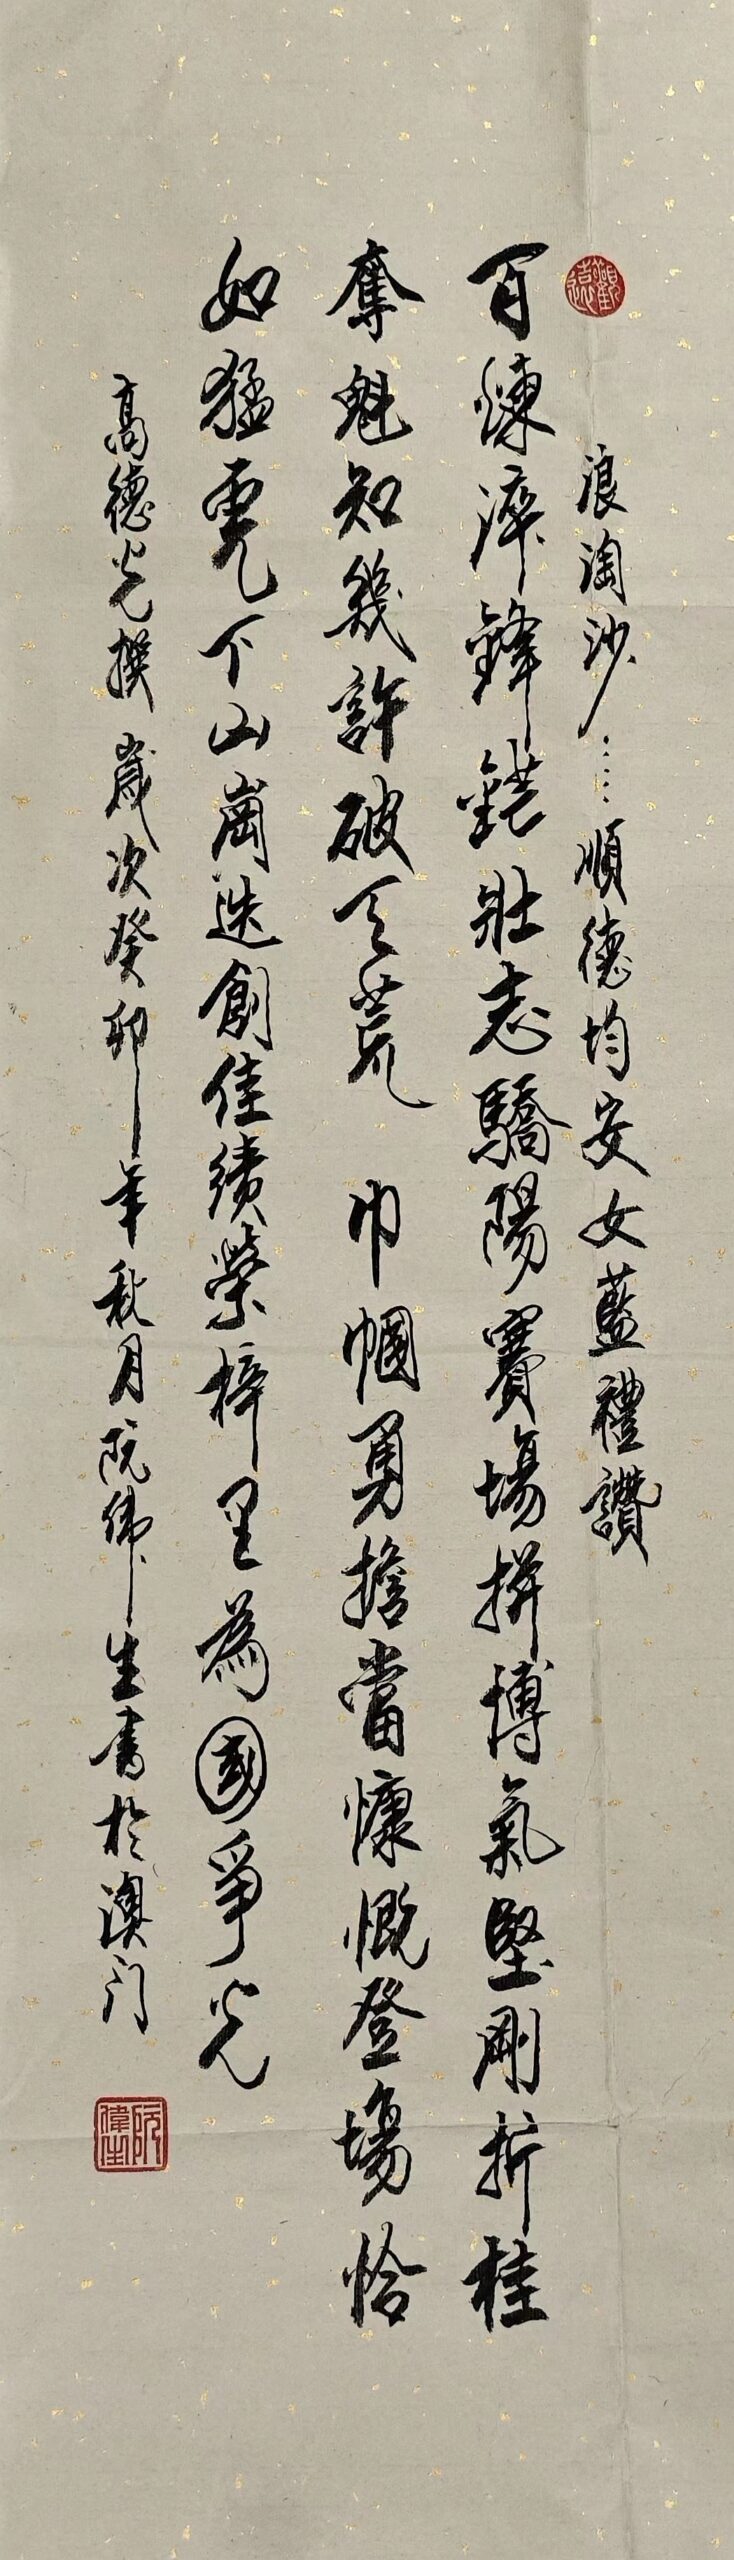 觀遠
浪淘沙……順德均安女藍禮讚
百煉淬鋒鋩壯志驕陽賽場拼博氣堅剛折桂
奪魁知幾許破天荒 巾幗勇擔當慷慨登場恰
如猛虎下山崗迭創佳績榮梓里為國爭光
高德光撰 歲次癸卯年秋月阮偉生書於澳门
阮偉生